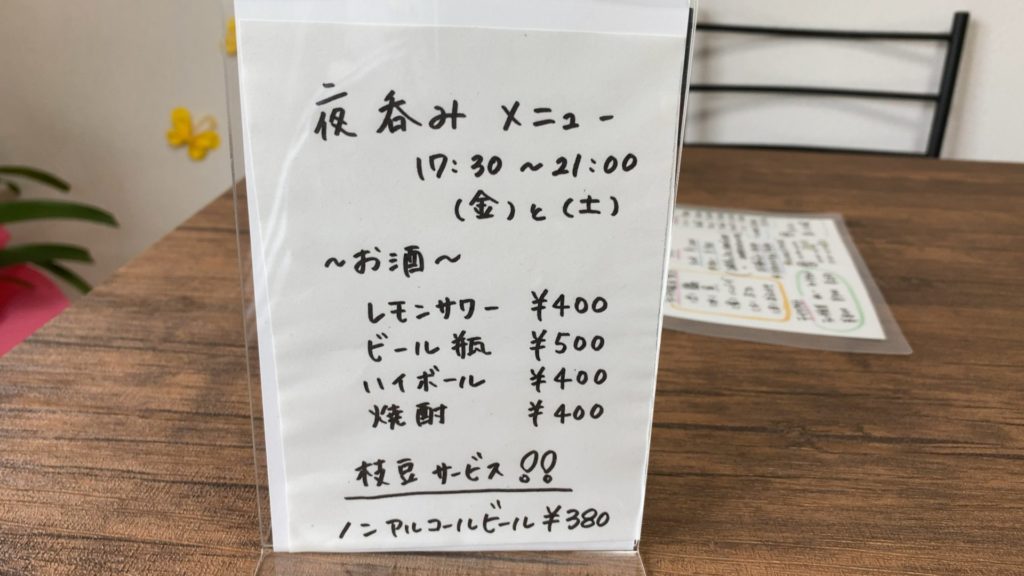 夜呑み メニュー
17:30 ~ 21:00
(金)と(土)
~お酒~
レモンサワー ¥400
ビール瓶 ¥500
ハイボール ¥400
焼酎 ¥400
枝豆サービス!!
ノンアルコールビール ¥380